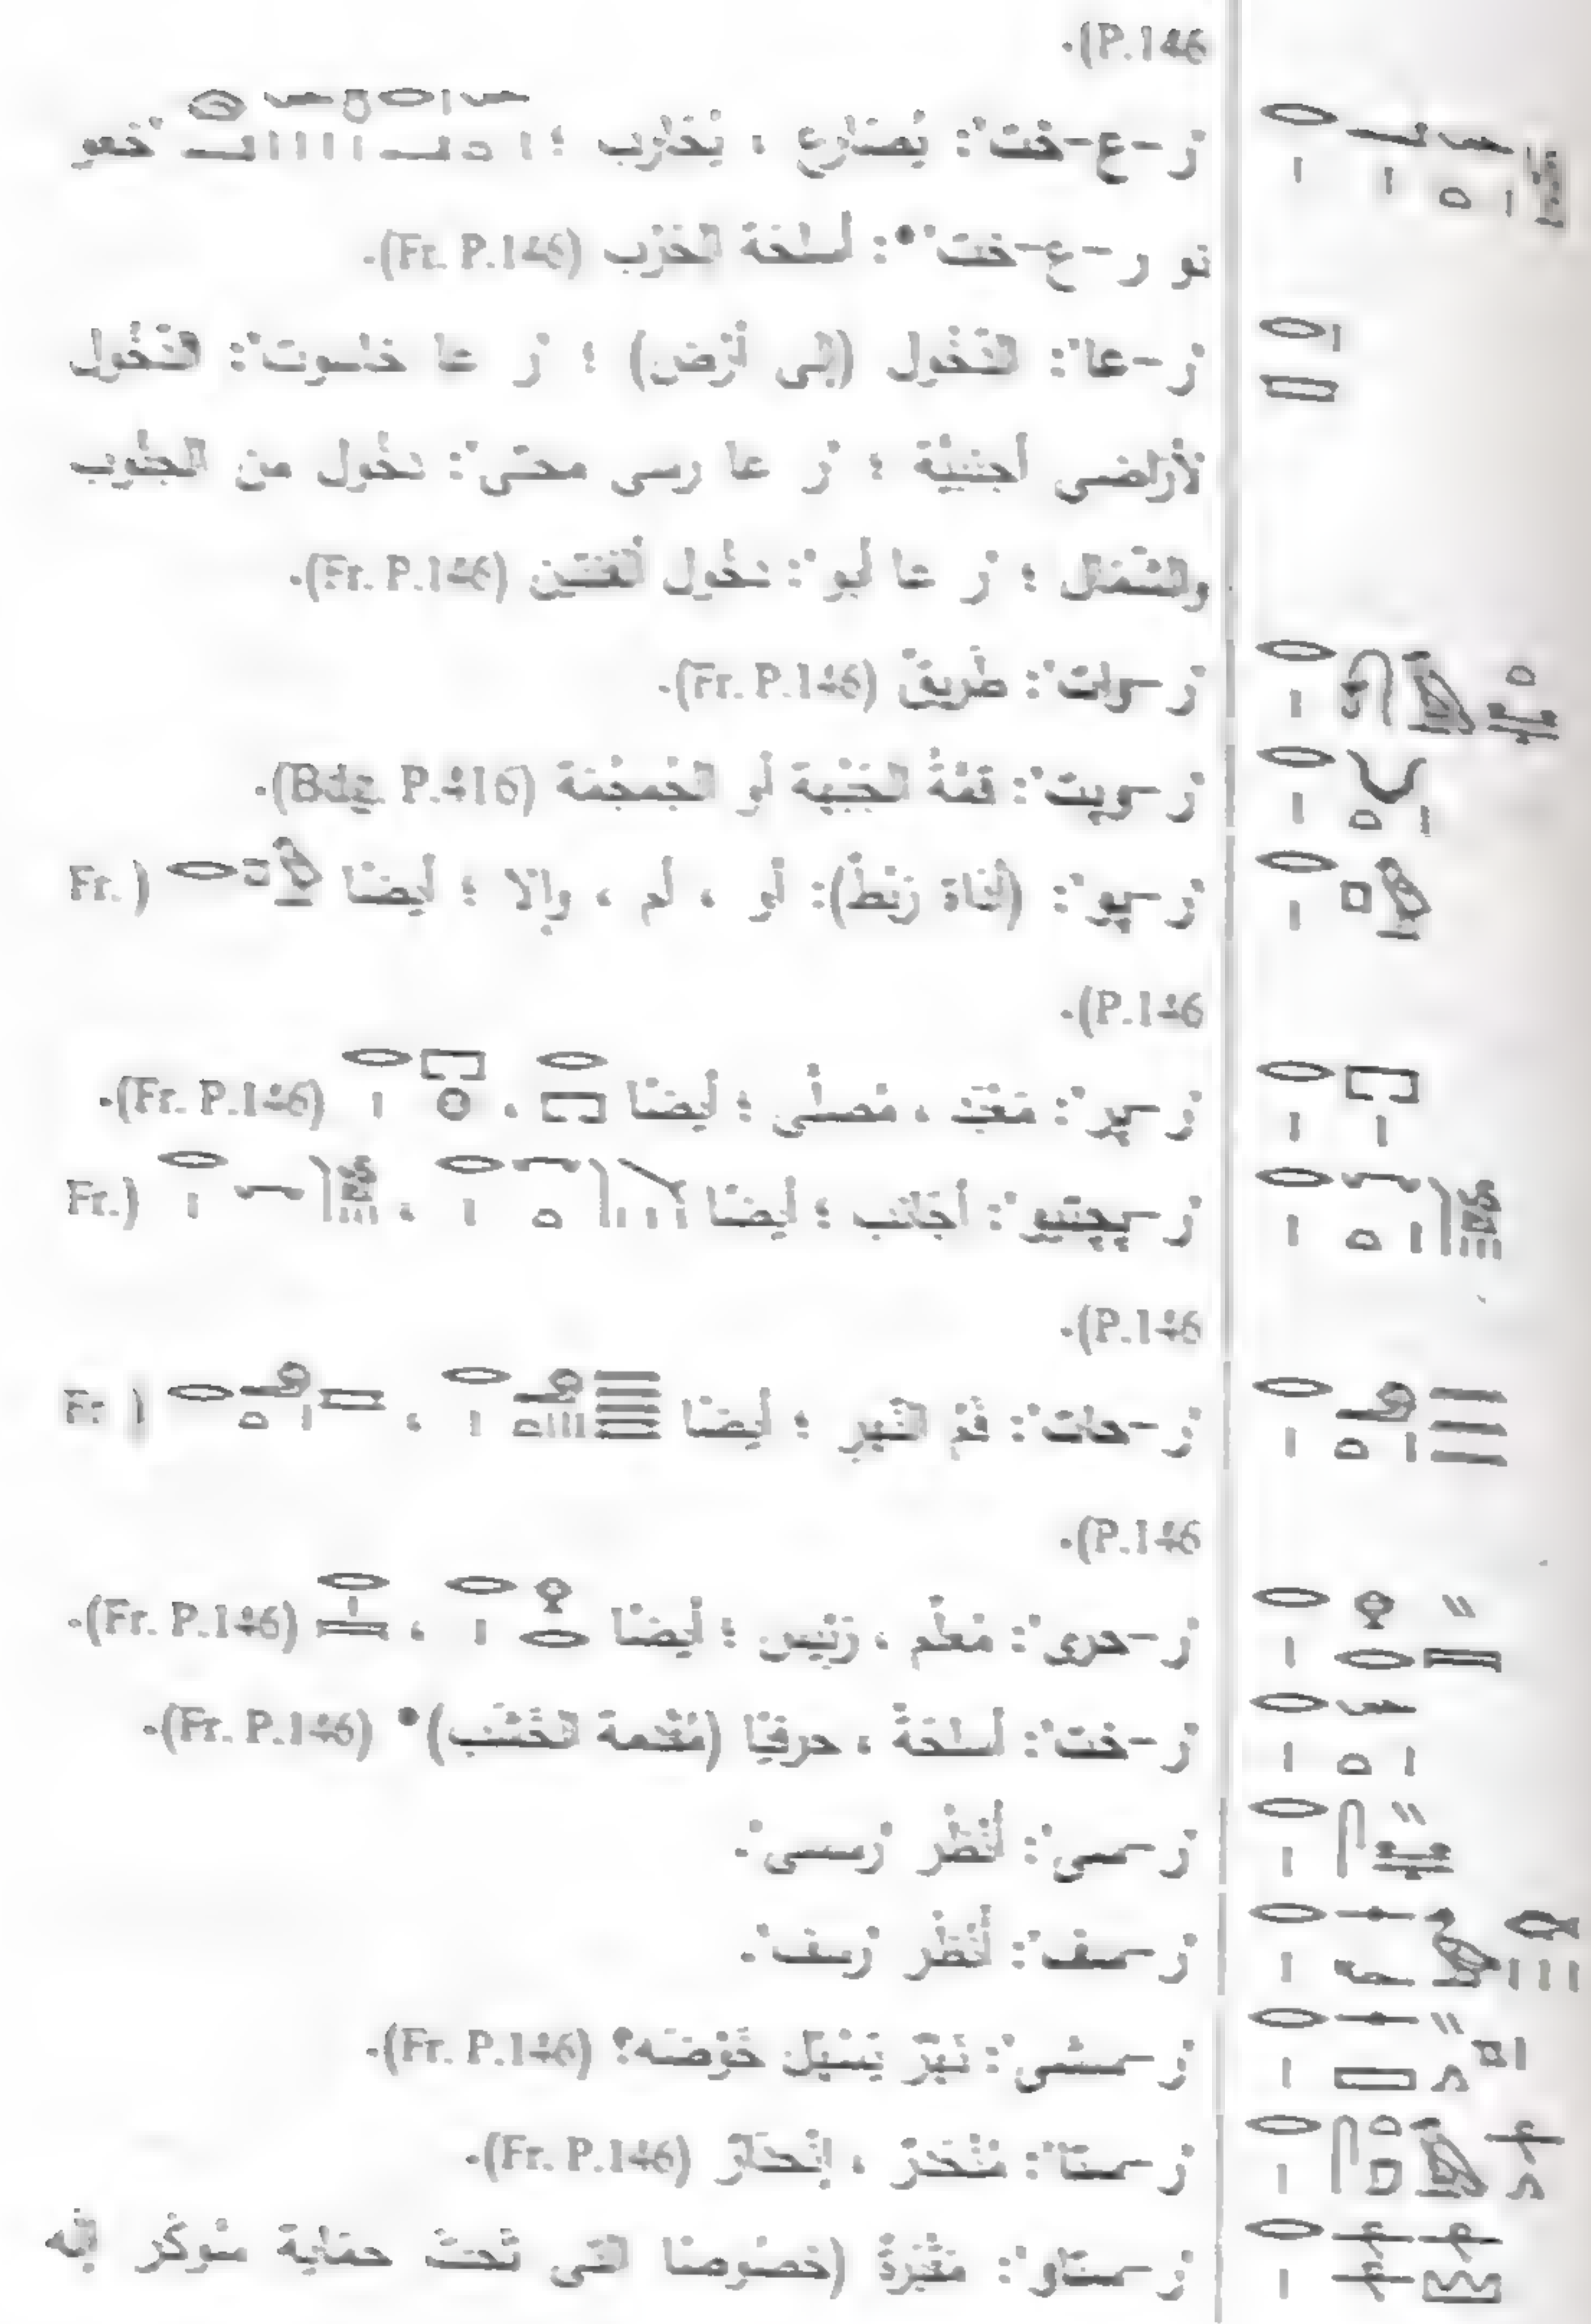 P.146).
"ر-ع-خت": يُصَارع ، يُحَارب ؛ "خعو
نو ر-ع-خت": أسلحَة الحَرْب (Fr. P.146).
"ر-عا": الدُخُول (إلى أرْض) ؛ "ر عا خاسوت": الدُخُول
لأرَاضى أجنَبيَّة ؛ "ر عا رسى محتى": دخُول من الجنُوب
والشّمَال ؛ "ر عا أبو": دخُول ألفنتين (Fr. P.146).
"ر-وات": طَريقٌ (Fr. P.146).
"ر-وبت": قمَّةُ الجَبْهَة أو الجُمجُمَة (Bdg. P.416).
"ر-پو": (أدَاة رَبْط): أو ، أم ، وإلا ؛ أيضًا (Fr.
P.146).
"ر-پر": مَعْبَد ، مُصلَّى ؛ أيضًا ، (Fr. P.146).
"ر-پچتيو": أجَانب ؛ أيضًا ، (Fr.
P.146).
"ر-حات": فَم النَهر ؛ أيضًا ، (Fr
P.146).
"ر-حرى": مُعلّم ، رَئيس ؛ أيضًا ، (Fr. P.146).
"ر-خت": أسلحَةٌ ، حرفيًا (مُقدّمة الخَشَب) (Fr. P.146).
"ر-سى": أنْظُر "رسى".
"ر-سف": أنْظُر "رسف".
"ر-سشى": نَهرٌ يَسْيل حَوْضه؟ (Fr. P.146).
"ر-ستا": مُنْحَدَرٌ ، إنْحدَارٌ (Fr. P.146).
"ر-ستاو": مَقْبَرةٌ (خصُوصًا التى تَحت حمَاية سُوكَر إله